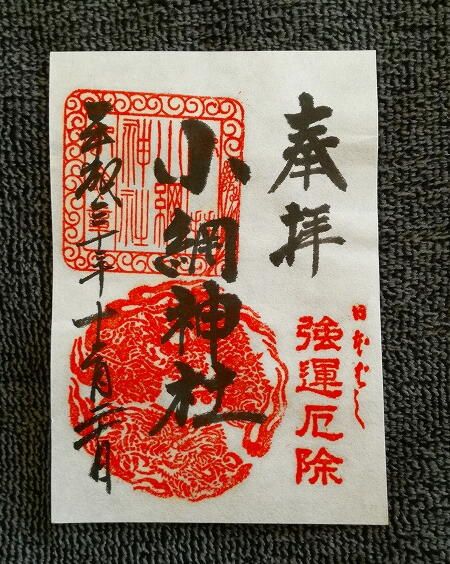 奉拝
日本ばし
強運厄除
小網神社
平成三十年十
小網
神社